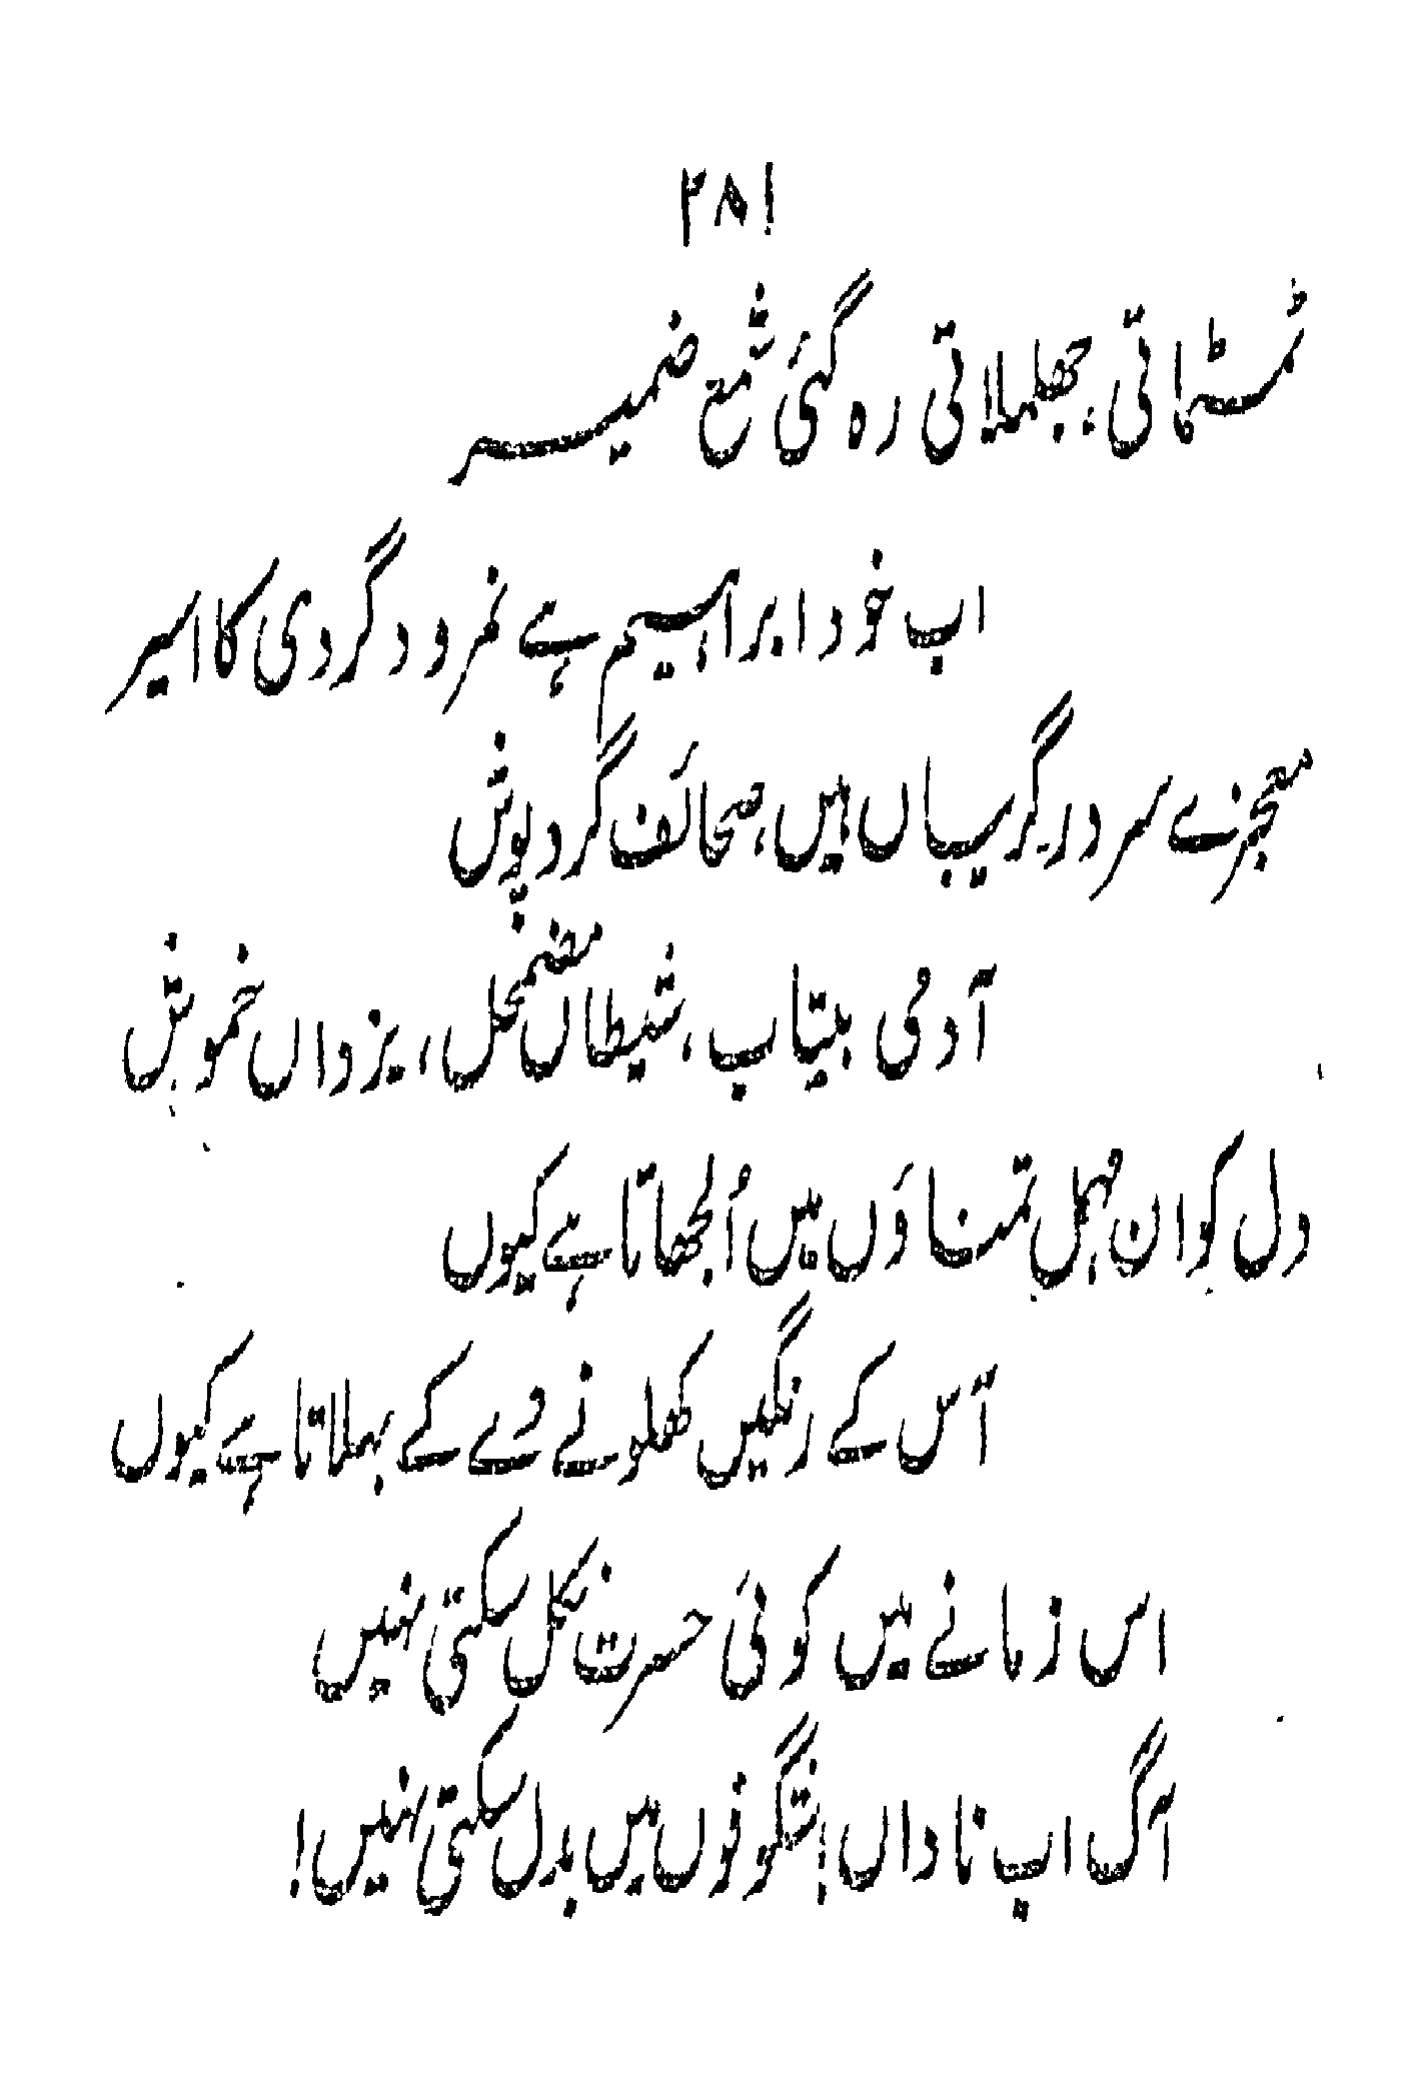 ۲۸۱
ٹمٹماتی، جھلملاتی رہ گئی شمع ضمیر
اب خود ابراہیم ہے نمرود گردی کا اسیر
معجزے سر در گریباں ہیں، صحائف گرد پوش
آدمی بیتاب، شیطاں مضمحل، یزداں خموش
دل کو ان مہمل تمناؤں میں اُلجھاتا ہے کیوں
آس کے رنگیں کھلونے دے کے بہلاتا ہے کیوں
اس زمانے میں کوئی حسرت نکل سکتی نہیں
آگ اب ناداں! شگوفوں میں بدل سکتی نہیں!